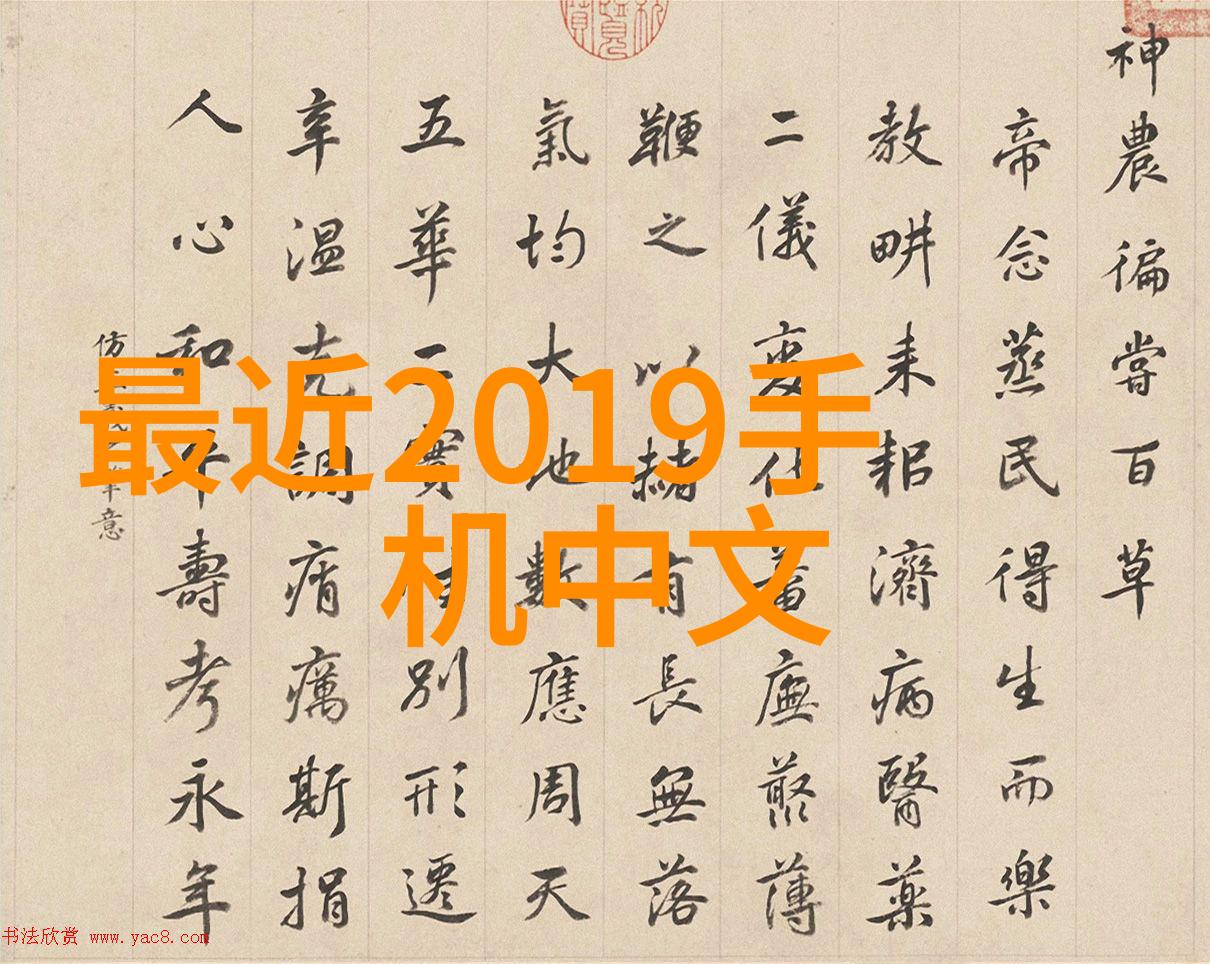 神農徧嘗百草
帝念蒸民得生而樂
教畊耒耜濟病醫藥
二儀变化蓄廡聚薄
鞭之以赭有長無落
氣均大地數應周天
五華二實別形遷
辛温克調痟癘斯捐
人心和平壽考永年
仿意
最近2019手
机中文
书法欣赏 www.yac8.com